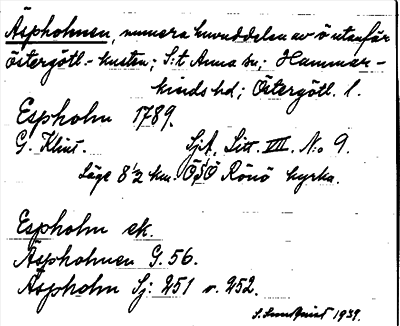 Äspholmen, numera huvuddelen av ö utanför
Östergötl.-kusten; S:t Anna sn; Hammar-
kinds hd; Östergötl. l.
Espholm 1789.
G. Klint. Sjk. Litt. VIII. No 9.
Läge 8 1/2 km. ÖSÖ Rönö kyrka.
Espholm ek.
Äspholmen G. 56.
Äspholm Sj: 251 o. 252.
S. Sundquist 1939.